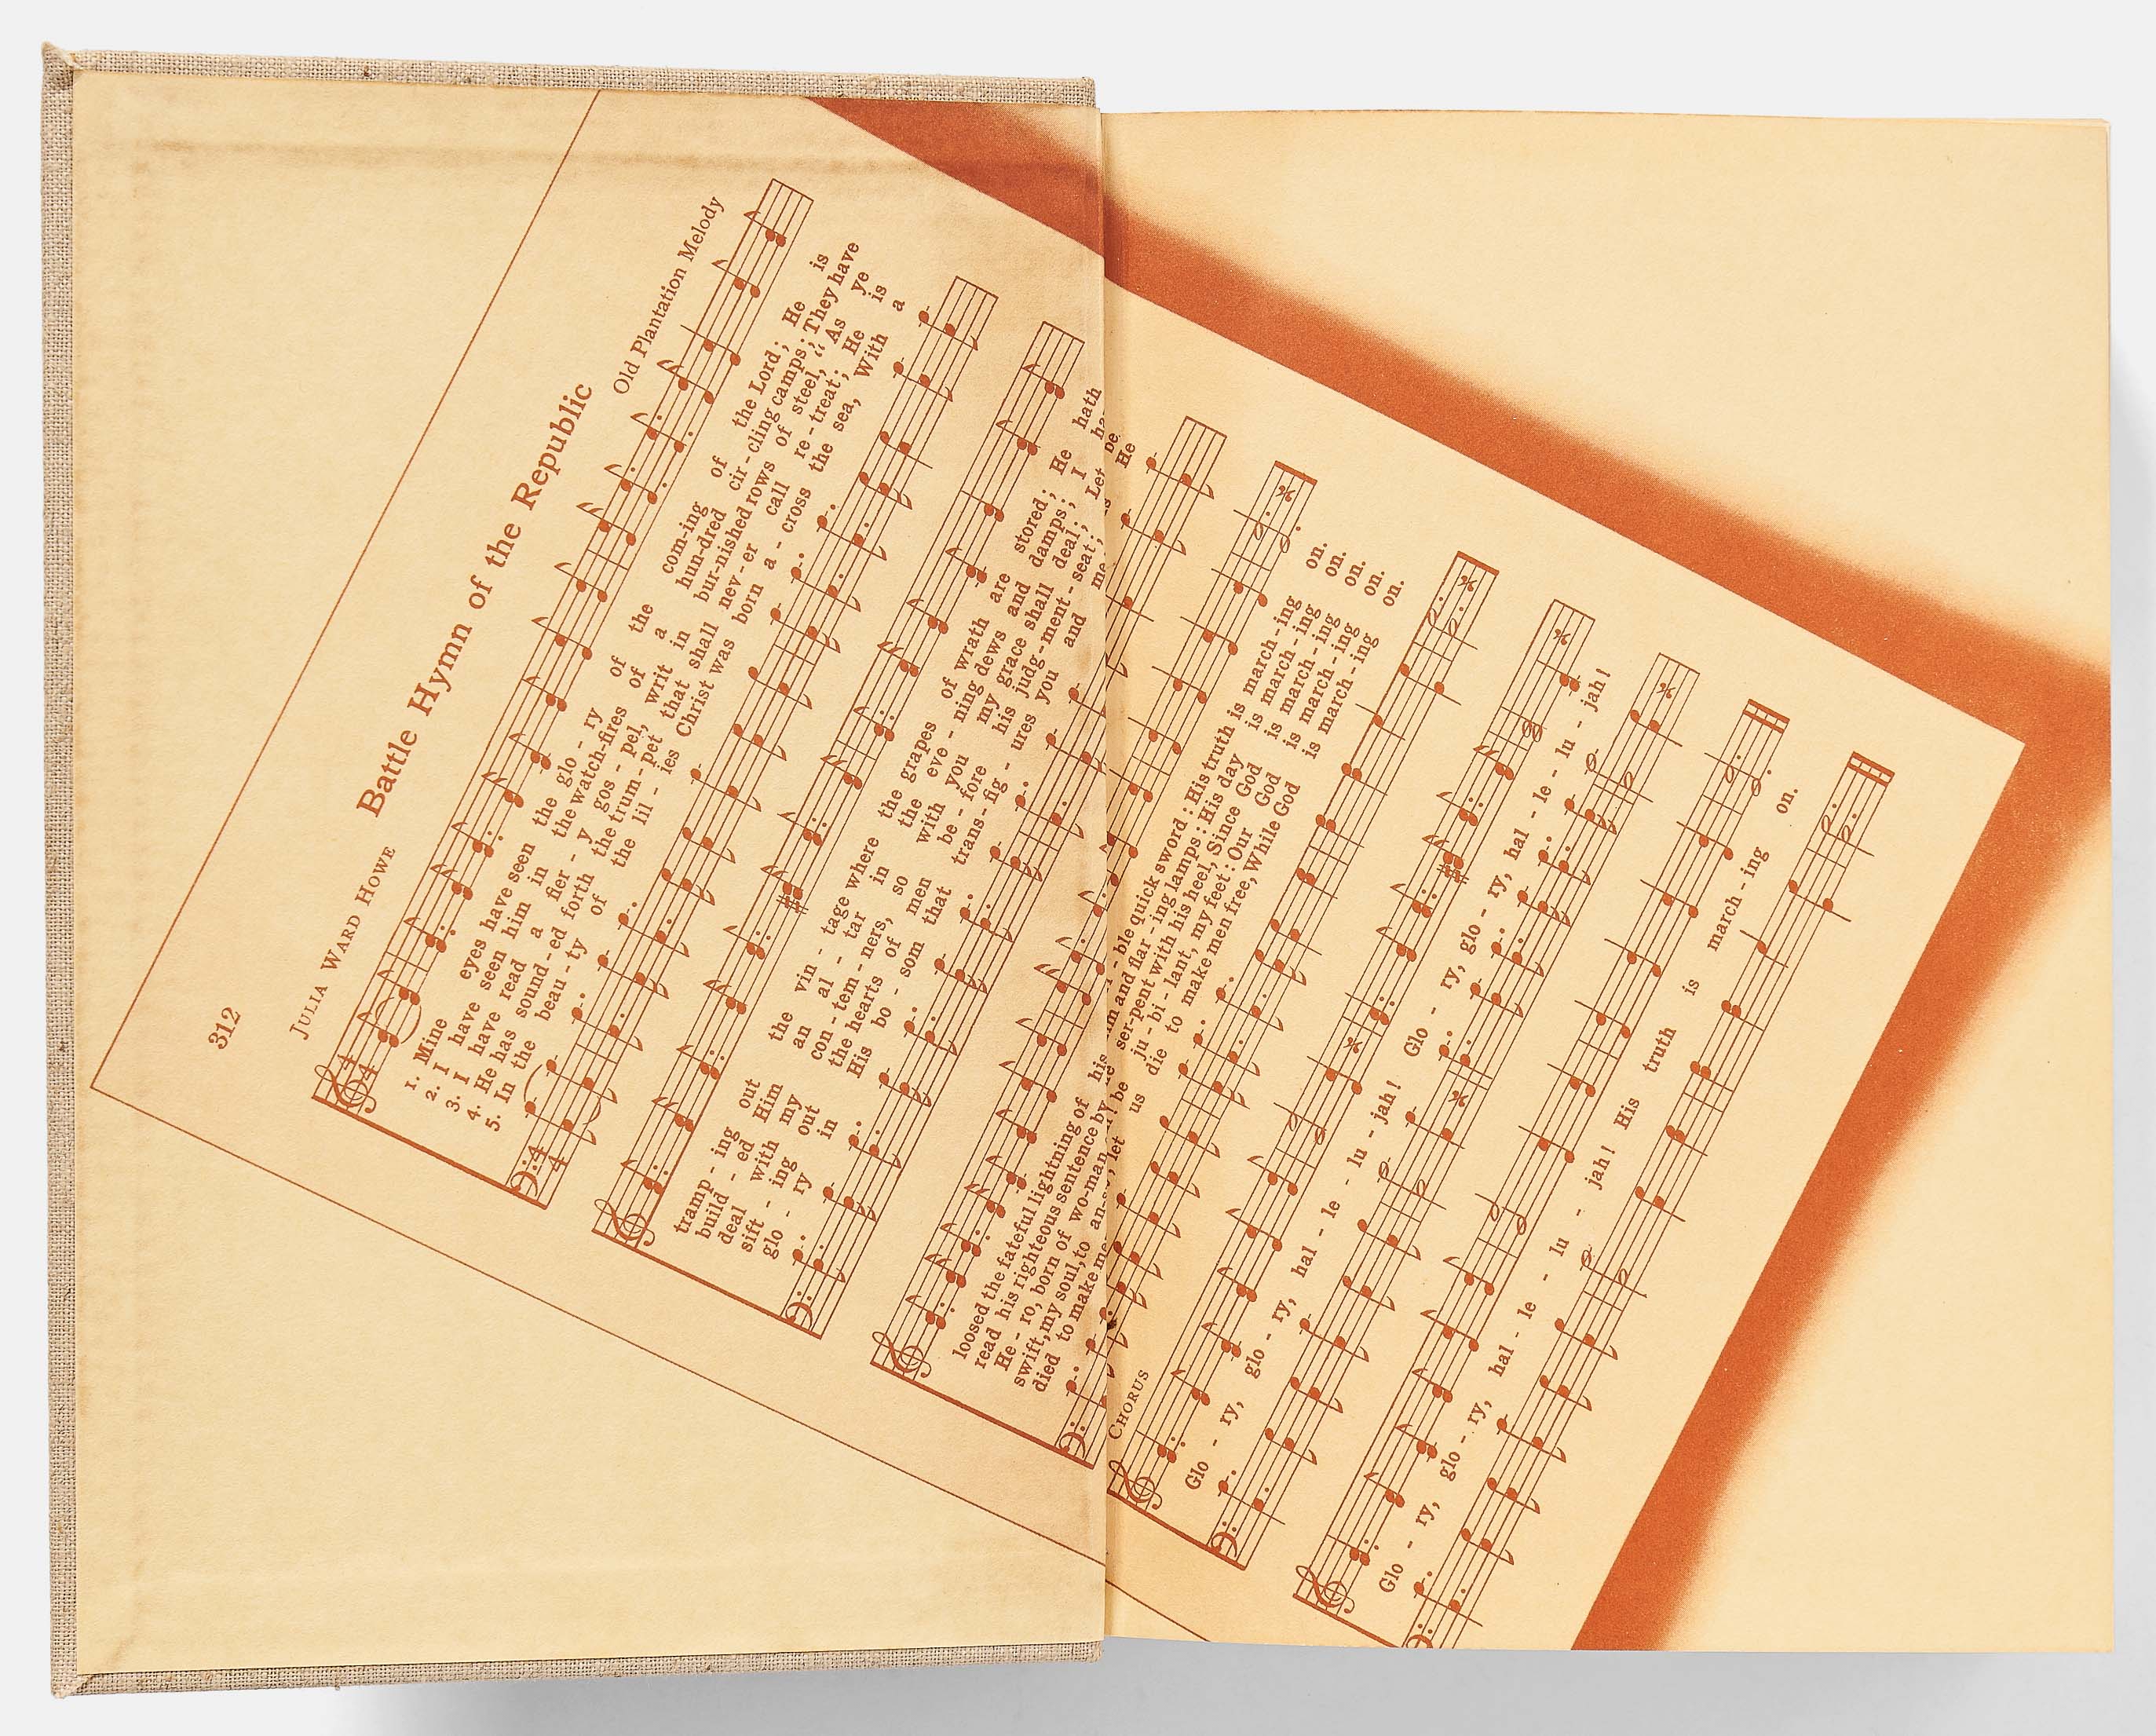 312
Battle Hymn of the Republic
JULIA WARD HOWE Old Plantation Melody
1. Mine eyes have seen the glo - ry of the com-ing of the Lord; He is
2. I have seen him in the watch-fires of a hun-dred cir-cling camps; They have
3. I have read a fier - y gos - pel, writ in bur-nished rows of steel, "As ye
4. He has sound-ed forth the trum-pet that shall nev-er call re-treat; He is
5. In the beau-ty of the lil - ies Christ was born a-cross the sea, With a
tramp - ing out the vin - tage where the grapes of wrath are stored; He hath
build - ed Him an al - tar in the eve - ning dews and damps; I
deal with my con - tem - ners, so with you my grace shall deal; Let
sift - ing out the hearts of men be - fore his judg-ment-seat; be
glo - ry in His bo - som that trans-fig - ures you and me He
loosed the fateful lightning of his - ble quick sword: His truth is march-ing on.
read his righteous sentence by and flar - ing lamps: His day is march-ing on.
He - ro, born of wo-man ser-pent with his heel, Since God is march-ing on.
swift, my soul, to be ju - bi - lant, my feet: Our God is march-ing on.
died to make let us die to make men free, While God is march-ing on.
CHORUS
Glo - ry, glo - ry, hal - le - lu - jah! Glo - ry, glo - ry, hal - le - lu - jah!
Glo - ry, glo - ry, hal - le - lu - jah! His truth is march - ing on.